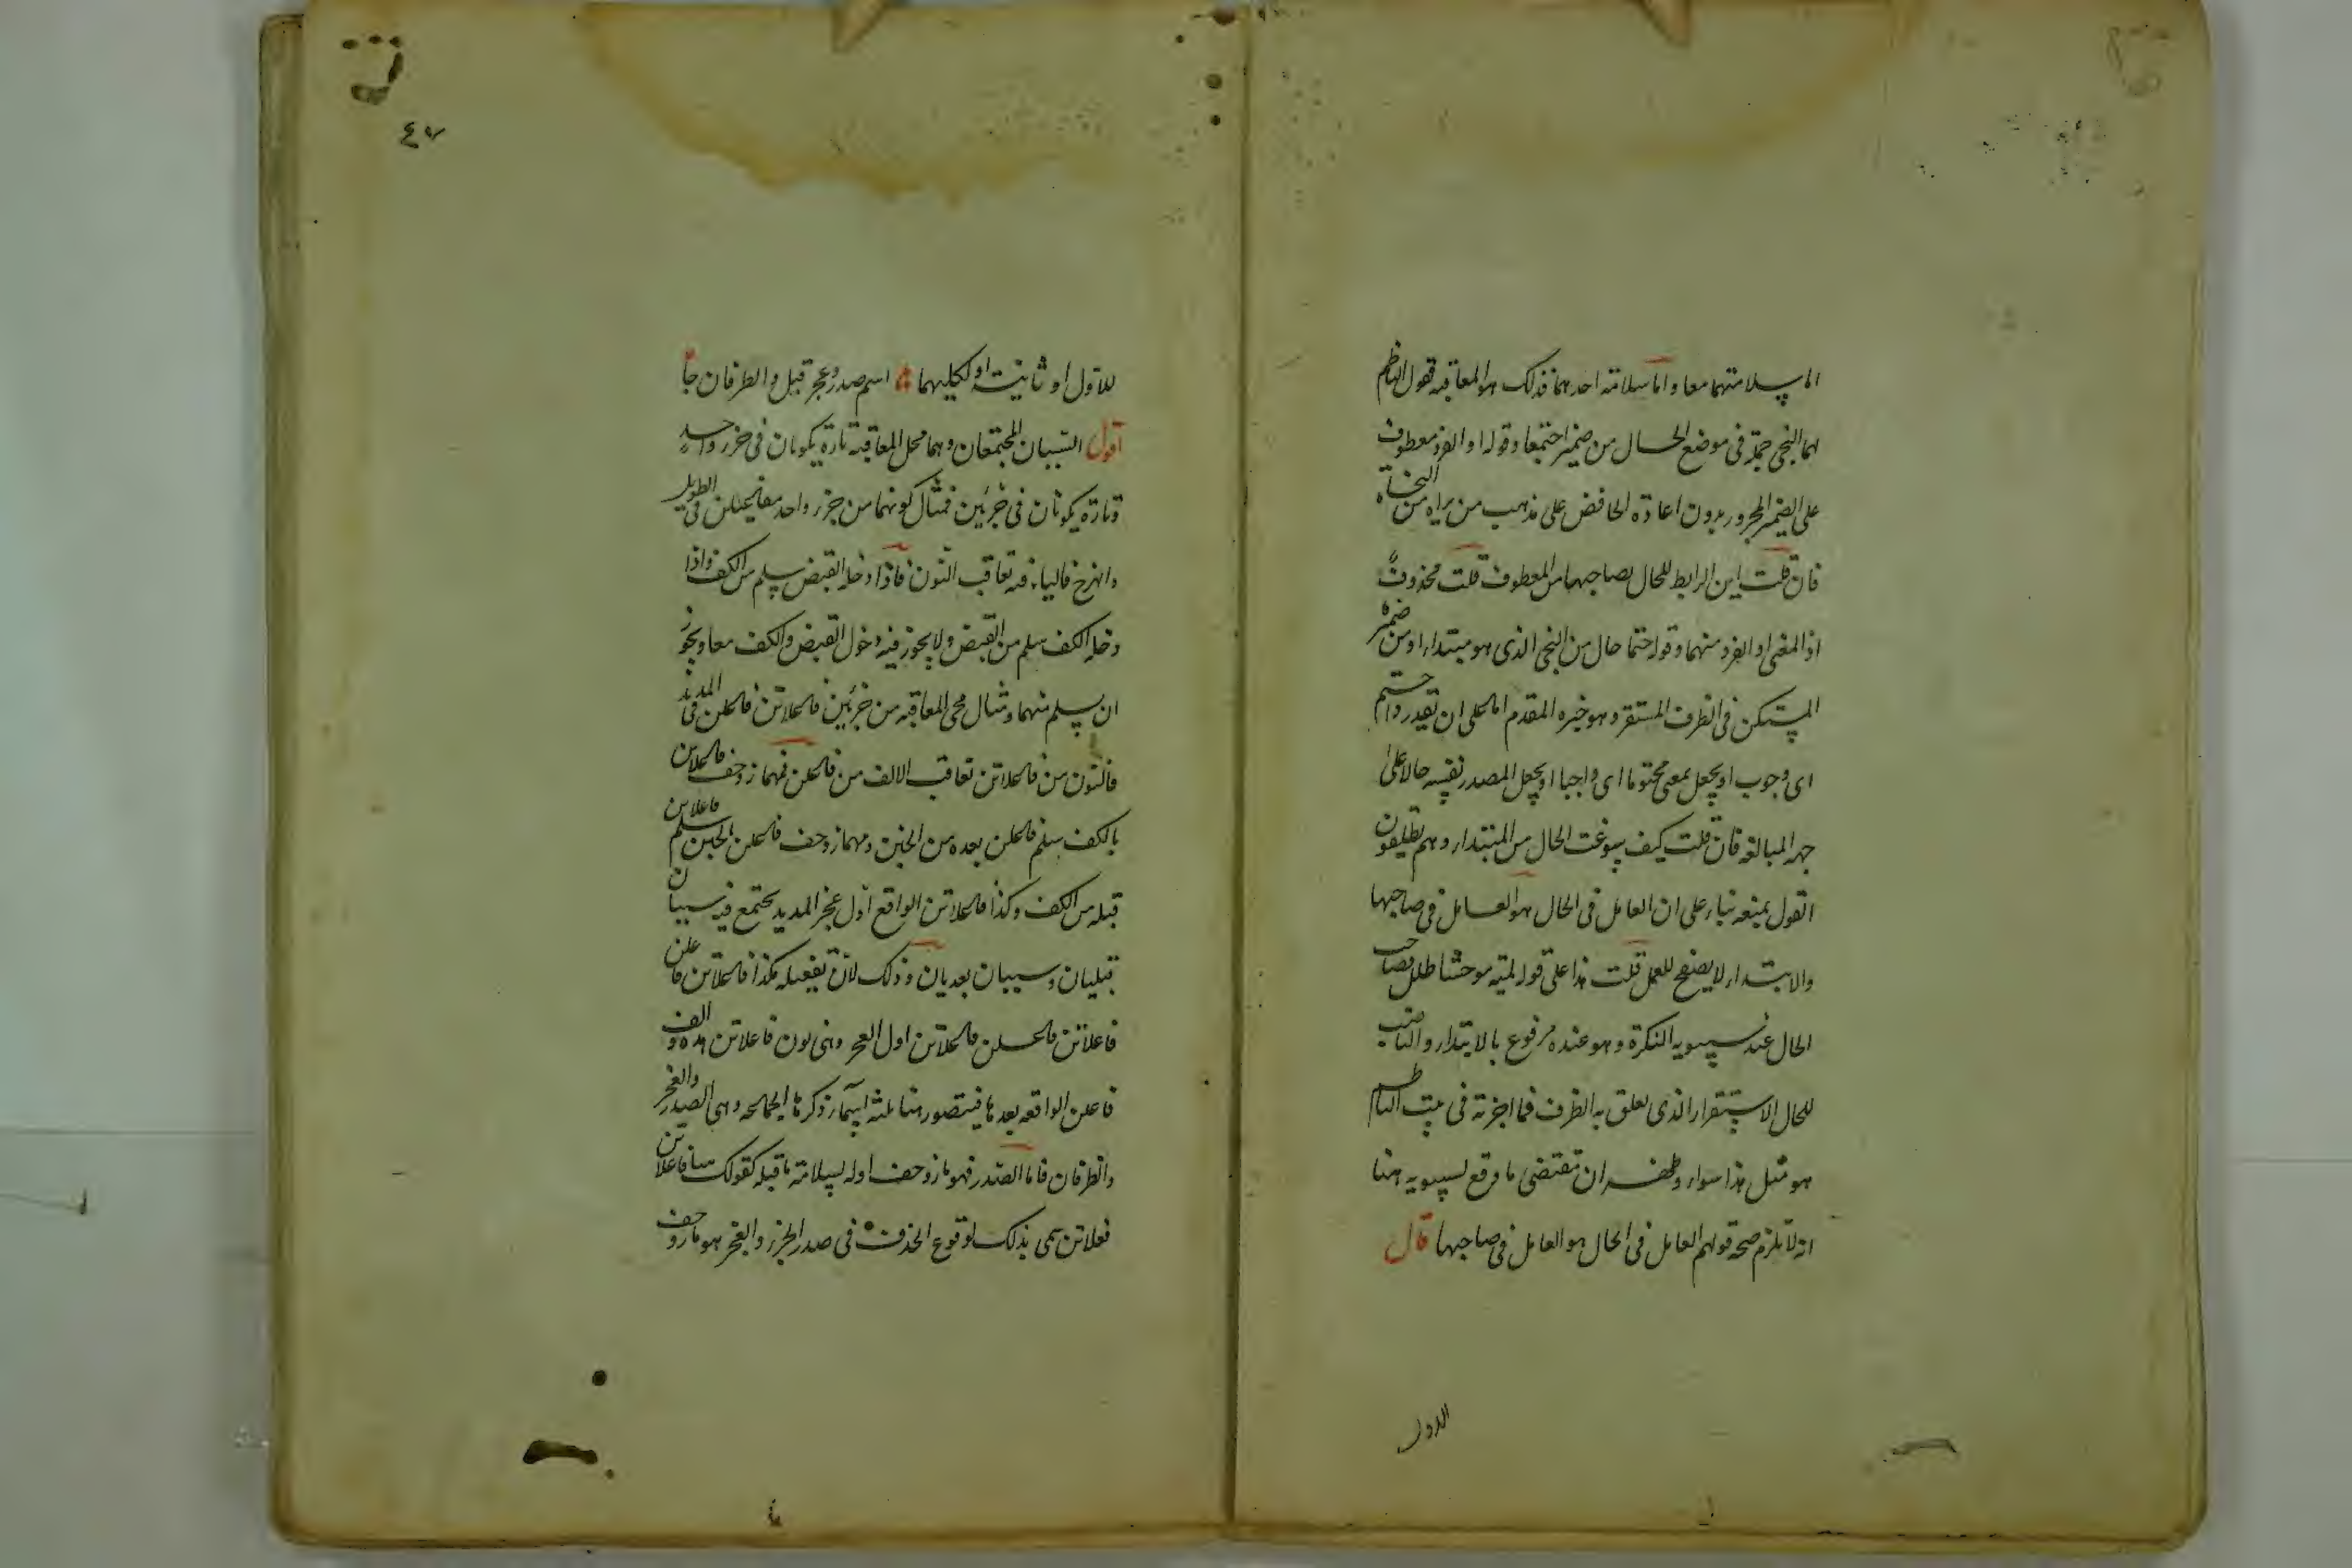 اما بسلامتهما معا واما سلامة احدهما فذلك هو المعاقبة فقول الناظم
لهما النجى جملة فى موضع الحال من ضمير اجتمعا وقوله او الفرد معطوف
على الضمير المجرور بدون اعادة الخافض على مذهب من يراه من النحاة
فان قلت اين الرابط للحال بصاحبها من المعطوف قلت محذوف
اذ المعنى او الفرد منهما وقوله حتما حال من النجى الذى هو مبتداء او من ضميره
المستكن فى الظرف المستقر وهو خبره المقدم اما على ان تقدر ذا حتم
اى وجوب او يجعل بمعنى محتوما اى واجبا او يجعل المصدر نفسه حالا على
جهة المبالغة فان قلت كيف سوغت الحال من المبتداء وهم يطلقون
القول بمنعه بناء على ان العامل فى الحال هو العامل فى صاحبها
والابتداء لا يصلح للعمل قلت هذا على قوله لمية موحشا طلل فصاحب
الحال عند سيبويه النكرة وهو عنده مرفوع بالابتداء والناصب
للحال الاستقرار الذى تعلق به الظرف فما اجزته فى بيت الناظم
هو مثل هذا سواء ان تقتضى ما وقع لسيبويه هنا
انه لا يلزم صحة قولهم العامل فى الحال هو العامل فى صاحبها قال
للاول
٤٧
للاول او ثانيه او لكليهما اسم صدر وعجز قيل والطرفان جا
اقول السببان المجتمعان وهما محل المعاقبة تارة يكونان فى جزء واحد
وتارة يكونان فى جزئين فمثال كونهما من جزء واحد مفاعيلن فى الطويل
والهزج فالياء فيه تعاقب النون فاذا دخله القبض سلم من الكف واذا
دخله الكف سلم من القبض ولا يجوز فيه دخول القبض والكف معا ويجوز
ان يسلم منهما ومثال محل المعاقبة من جزئين فاعلاتن فاعلن فى المديد
فالنون من فاعلاتن تعاقب الالف من فاعلن فمهما زوحف فاعلاتن
بالكف سلم فاعلن بعده من الخبن ومهما زوحف فاعلن بالخبن سلم فاعلاتن
قبله من الكف وكذا فاعلاتن الواقع اول عجز المديد يجتمع فيه سببان
قبليان وسببان بعديان وذلك لان تفعيله هكذا فاعلاتن فاعلن
فاعلاتن فاعلن فاعلاتن اول العجز وهى نون فاعلاتن هذه والف
فاعلن الواقعة بعدها فيتصور هنا ثلثة اسماء ذكرها الجماعة وهى الصدر والعجز
والطرفان فاما الصدر فهو ما زوحف اوله لسلامة ما قبله كقولك فاعلاتن
فعلاتن سمى بذلك لوقوع الحذف فى صدر الجزء والعجز هو ما زوحف